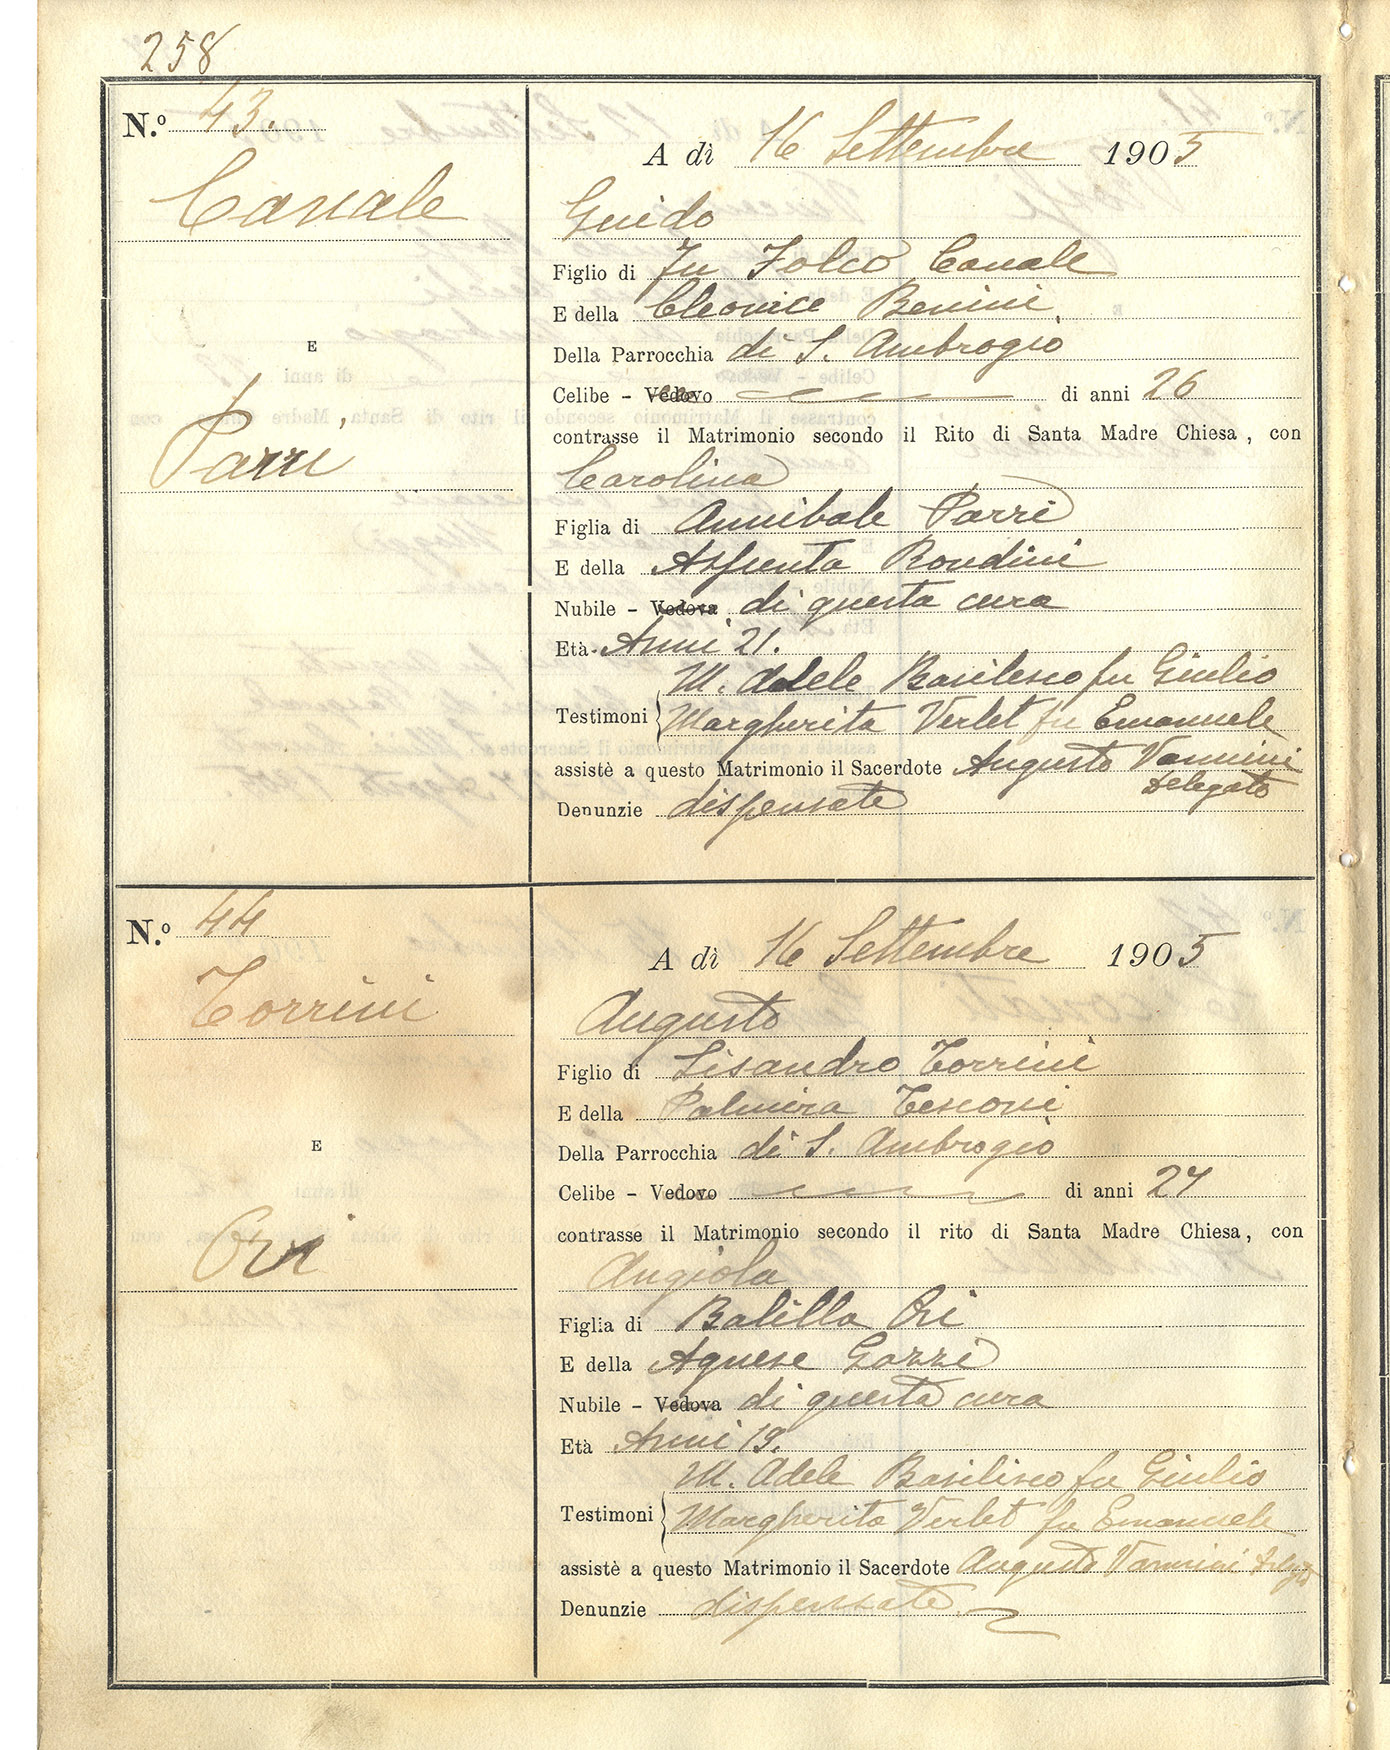 258
N.º 43.
Canale
E
Parri
A dì 16 Settembre 1905
Guido
Figlio di fu Folco Canale
E della Cleonice Benini
Della Parrocchia di S. Ambrogio
Celibe - Vedovo di anni 26
contrasse il Matrimonio secondo il Rito di Santa Madre Chiesa, con
Carolina
Figlia di Annibale Parri
E della Assunta Rondini
Nubile - Vedova di questa cura
Età Anni 21.
M. Adele Basilisco fu Giulio
Testimoni Margherita Verlet fu Emanuele
assistè a questo Matrimonio il Sacerdote Augusto Vannini
Delegato
Denunzie dispensate
N.º 44
Torrini
E
Ori
A dì 16 Settembre 1905
Augusto
Figlio di Lisandro Torrini
E della Palmira Tesconi
Della Parrocchia di S. Ambrogio
Celibe - Vedovo di anni 24
contrasse il Matrimonio secondo il rito di Santa Madre Chiesa, con
Angiola
Figlia di Balilla Ori
E della Agnese Gozzi
Nubile - Vedova di questa cura
Età Anni 19.
M. Adele Basilisco fu Giulio
Testimoni Margherita Verlet fu Emanuele
assistè a questo Matrimonio il Sacerdote Augusto Vannini
Denunzie dispensate